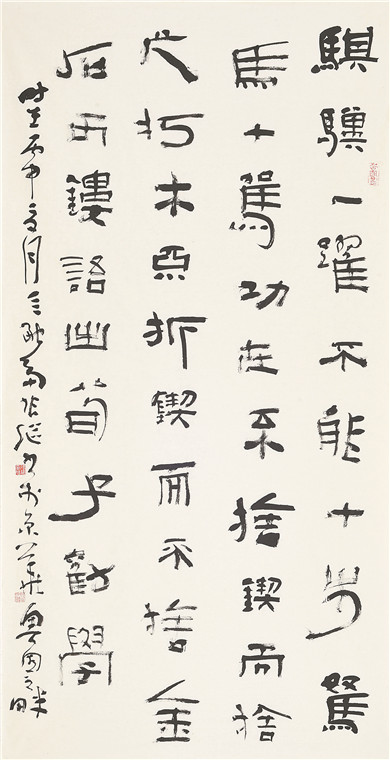 騏驥一躍不能十步駑
馬十駕功在不捨鍥而捨
之朽木不折鍥而不捨金
石可鏤語出荀子勸學
時在丙申月三耻齋張繼書於京華奧園之畔